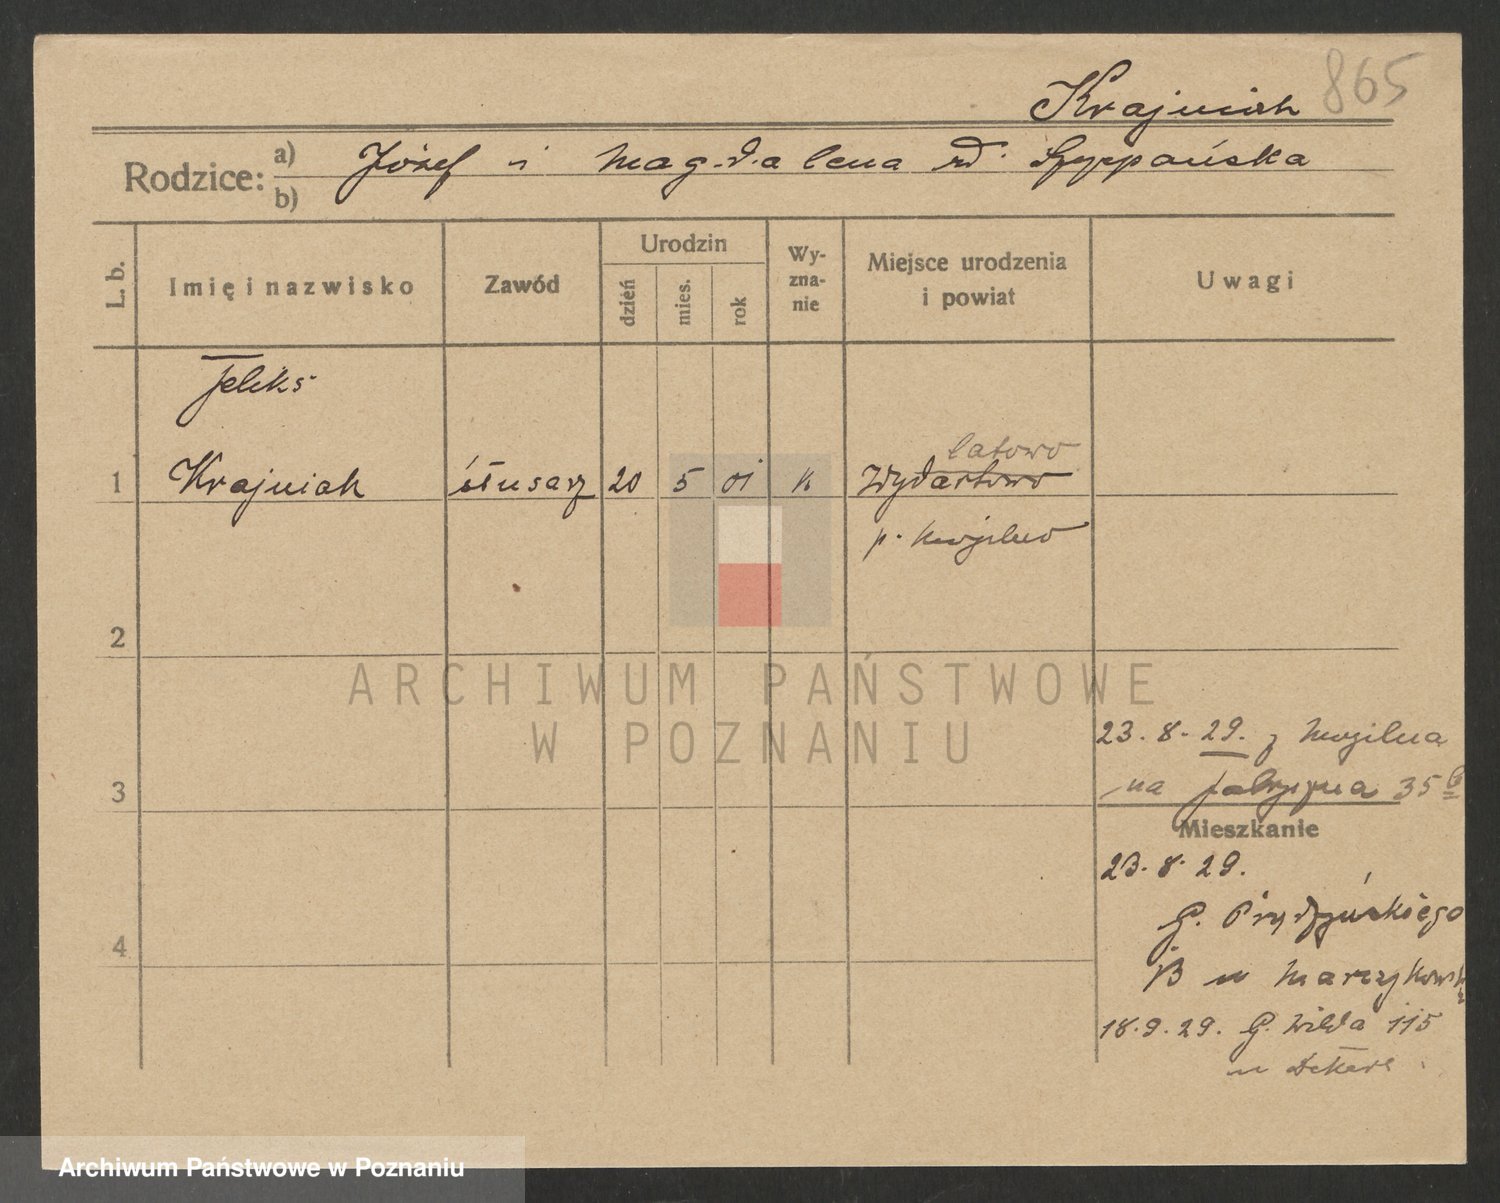 865
Krajniak
Rodzice: a) b) Józef i Magdalena
L. b. Imię i nazwisko Zawód Urodzin dzień mies. rok Wy-zna-nie Miejsce urodzenia i powiat Uwagi
Feliks
1 Krajniak ślusarz 20 5 01 k Wydartowo
p. Mogilno
2
ARCHIWUM PAŃSTWOWE
W POZNANIU
23.8.29. z Mogilna
3 na 35
Mieszkanie
23.8.29.
G.
4
18.9.29. G. Wilda 115
Archiwum Państwowe w Poznaniu